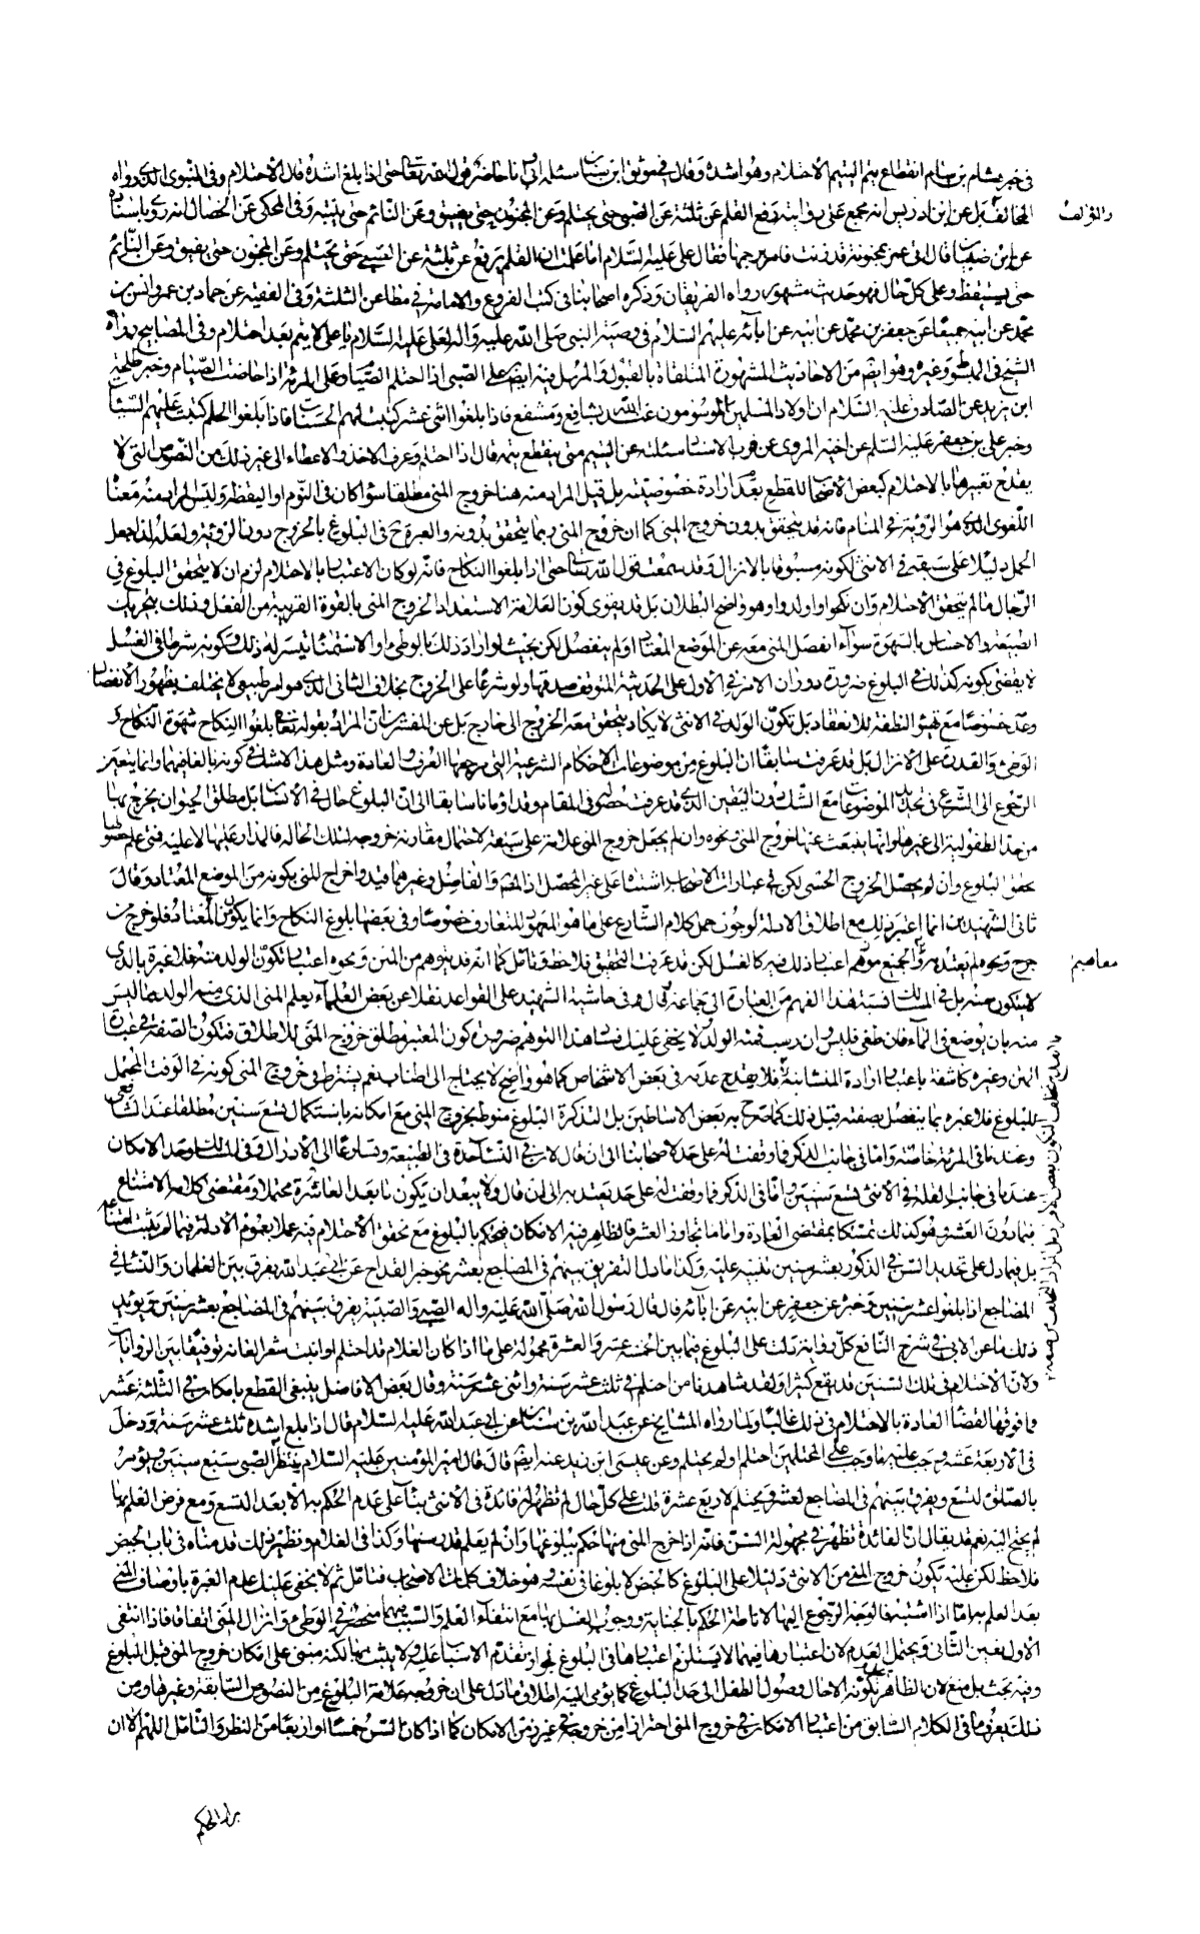 في خبر هشام بن سالم انقطاع يتم اليتيم الاحتلام وهو اشده وقال في موثق ابن سنان سئله ابي وانا حاضر عن قول الله تعالى حتى اذا بلغ اشده قال الاحتلام وفي النبوي الذي رواه
المخالف والمؤالف بل عن ابن ادريس انه مجمع على روايته رفع القلم عن ثلثة عن الصبي حتى يحتلم وعن المجنون حتى يفيق وعن النائم حتى ينتبه وفي المحكي عن الخصال انه روى باسناده
عن ابن ظبيان قال اتي عمر بمجنونة قد زنت فامر برجمها فقال علي عليه السلام اما علمت ان القلم يرفع عن ثلثة عن الصبي حتى يحتلم وعن المجنون حتى يفيق وعن النائم
حتى يستيقظ وعلى كل حال فهو حديث مشهور رواه الفريقان وذكره اصحابنا في كتب الفروع والامامة في مطاعن الثلثة وفي الفقيه عن حماد بن عمرو وانس بن
محمد عن ابيه جميعا عن جعفر بن محمد عن ابيه عن ابائه عليهم السلام في وصية النبي صلى الله عليه واله لعلي عليه السلام يا علي لا يتم بعد احتلام وفي المصابيح رواه
الشيخ في المبسوط وغيره وهو ايضا من الاحاديث المشهورة المتلقاة بالقبول والمرسل فيه ايضا على الصبي اذا احتلم الصيام وعلى المرئة اذا حاضت الصيام وخبر طلحة
ابن زيد عن الصادق عليه السلام ان اولاد المسلمين الموسومون عند الله بشافع ومشفع فاذا بلغوا اثنى عشر كتبت لهم الحسنات فاذا بلغوا الحلم كتبت عليهم السيئات
وخبر علي بن جعفر عليه السلم عن اخيه المروي عن قرب الاسناد سئلته عن اليتيم متى ينقطع يتمه قال اذا احتلم وعرف الاخذ والاعطاء الى غير ذلك من النصوص التي لا
يقدح تعبيرها بالاحتلام كبعض الاصحاب للقطع بعدم ارادة خصوصيته بل قيل المراد منه هنا خروج المني مطلقا سواء كان في النوم او اليقظة وليس المراد منه معناه
اللغوي الذي هو الرؤية في المنام فانه قد يتحقق بدون خروج المني كما ان خروج المني ربما يتحقق بدونه والعبرة ح في البلوغ بالخروج دون الرؤية ولعله لذا جعل
الحمل دليلا على سبقه في الانثى لكونه مسبوقا بالانزال وقد سمعت قول الله تعالى حتى اذا بلغوا النكاح فانه لو كان الاعتبار بالاحتلام لزم ان لا يتحقق البلوغ في
الرجال ما لم يتحقق الاحتلام وان نكحوا واولدوا وهو واضح البطلان بل قد يقوى كون العلامة الاستعداد لخروج المني بالقوة القريبة من الفعل وذلك بتحريك
الطبيعة والاحساس بالشهوة سواء انفصل المني معه عن الموضع المعتاد او لم ينفصل لكن بحيث لو اراد ذلك بالوطئ او الاستمناء تيسر له ذلك وكونه شرطا في الغسل
لا يقضي بكونه كذلك في البلوغ ضرورة دوران الامر في الاول على الحدثية المتوقف صدقها ولو شرعا على الخروج بخلاف الثاني الذي هو امر طبيعي لا يختلف بظهور الانفصال
وعدمه خصوصا مع تهيؤ النطفة للانعقاد بل تكون الولد في الانثى لا يكاد يتحقق معه الخروج الى خارج بل عن المفسرين ان المراد بقوله تعالى بلغوا النكاح شهوة النكاح و
الوطئ والقدرة على الانزال بل قد عرفت سابقا ان البلوغ من موضوعات الاحكام الشرعية التي مرجعها العرف والعادة ومثل هذا لا شك في كونه بالغا فيهما وانما يتعين
الرجوع الى الشرع في تحديد الموضوعات مع الشك دون اليقين الذي قد عرفت حصوله في المقام وقد اومانا سابقا الى ان البلوغ حال في الانسان بل مطلق الحيوان يخرج بها
من حد الطفولية الى غيرها وانها ينبعث عنها خروج المني ونحوه وان لم يجعل خروج المني علامة على سبقه لاحتمال مقارنة خروجه لتلك الحالة فالمدار عليها لا عليه فمتى علم حصولها
تحقق البلوغ وان لم يحصل الخروج الحسي لكن في عبارات الاصحاب اشتباه على غير المحصل اذ المصنف والفاضل وغيرهما قيدوا خراج المني بكونه من الموضع المعتاد وقال
ثاني الشهيدين انما اعتبر ذلك مع اطلاق الادلة لوجوب حمل كلام الشارع على ما هو المعهود المتعارف خصوصا وفي بعضها بلوغ النكاح وانما يكون من المعتاد فلو خرج من
جرح ونحوه لم يعتد به والجميع موهم اعتبار ذلك فيه كالغسل لكن قد عرفت التحقيق فلاحظ وتامل كما انه قد يتوهم من المتن ونحوه اعتبار تكون الولد منه فلا عبرة بالذي
لا يتكون منه بل في المسالك نسبة هذا الفهم من العبارة الى جماعة قال وفي حاشية الشهيد على القواعد نقلا عن بعض العلماء يعلم المني الذي منه الولد مما ليس
منه بان يوضع في الماء فان طفى فليس وان رسب فمنه الولد ولا يخفى عليك فساد هذا التوهم ضرورة كون المعتبر مطلق خروج المني للاطلاق فتكون الصفة في عبارة
المتن وغيره كاشفة باعتبار ارادة المنشاية فلا يقدح عدمه في بعض الاشخاص كما هو واضح لا يحتاج الى اطناب نعم يشترط في خروج المني كونه في الوقت المحتمل
للبلوغ فلا عبرة بما ينفصل بصفته قبل ذلك كما صرح به بعض الاساطين بل التذكرة البلوغ منوط بخروج المني مع امكانه باستكمال تسع سنين مطلقا عند الشافعي
وعندنا في المرئة خاصة واما في جانب الذكر فما وقفت له على حد لاصحابنا الى ان قال
عندنا في جانب القلة في الانثى تسع سنين واما في الذكر فما وقفت له على حد يعتد به الى ان قال ولا يبعد ان يكون ما بعد العاشرة محتملا ومقتضى كلامه الامتناع
فيما دون العشر وهو كذلك تمسكا بمقتضى العادة واما ما تجاوز العشر فالظاهر فيه الامكان فيحكم بالبلوغ مع تحقق الاحتلام فيه عملا بعموم الادلة فيما لم يثبت امتناعه
بل فيما دل على تحديد السن في الذكور بعشر سنين تنبيه عليه وكذا ما دل التفريق بينهم في المضاجع بعشر نحو خبر القداح عن ابي عبد الله يفرق بين الغلمان والنساء في
المضاجع اذا بلغوا عشر سنين وخبره عن جعفر عن ابيه عن ابائه قال قال رسول الله صلى الله عليه واله الصبي والصبي والصبية يفرق بينهم في المضاجع بعشر سنين ويؤيد
ذلك ما عن الابي في شرح النافع كل رواية دلت على البلوغ فيما بين الخمسة عشر والعشرة محمولة على ما اذا كان الغلام قد احتلم او انبت شعر العانة توفيقا بين الروايات
ولان الاحتلام في تلك السنين قد يقع كثيرا ولقد شاهدنا من احتلم في ثلث عشر سنة واثنى عشر سنة وقال بعض الافاضل ينبغي القطع بامكانه في الثلثة عشر
وما فوقها لقضاء العادة بالاحتلام في ذلك غالبا ولما رواه المشايخ عن عبد الله بن سنان عن ابي عبد الله عليه السلام قال اذا بلغ اشده ثلث عشر سنة ودخل
في الاربعة عشر وجب عليه ما وجب على المحتلمين احتلم او لم يحتلم وعن عيسى ابن زيد عنه ايضا قال قال امير المؤمنين عليه السلام يثغر الصبي سبع سنين ويؤمر
بالصلوة لتسع ويفرق بينهم في المضاجع لعشر ويحتلم لاربع عشرة قلت على كل حال لم تظهر له فائدة في الانثى بناء على عدم الحكم به الا بعد التسع ومع فرض العلم بها
لم يحتج اليه نعم قد يقال ان الفائدة تظهر في مجهولة السن فانه اذا خرج المني منها حكم ببلوغها وان لم يعلم قدر سنها وكذا في الغلام ونظير ذلك قدمناه في باب الحيض
فلاحظ لكن عليه تكون خروج المني من الانثى دليلا على البلوغ كالحيض لا بلوغا في نفسه وهو خلاف كلمات الاصحاب فتامل ثم لا يخفى عليك عدم العبرة باوصاف المني
بعد العلم به اما اذا اشتبه فالوجه الرجوع اليها لاناطة الحكم بالجنابة ووجوب الغسل بها مع انتفاء العلم والسبب فيهما منحصر في الوطئ وانزال المني اتفاقا فاذا انتفى
الاول تعين الثاني ويحتمل العدم لان اعتبارها فيهما لا يستلزم اعتبارها في البلوغ لجواز تقدم الاسباب عليه ولا يثبت بها لكنه مبني على امكان خروج المني قبل البلوغ
وفيه بحث بل منع لان الظاهر عدم تكونه الا حال وصول الطفل الى حد البلوغ كما يؤمي اليه اطلاق ما دل على ان خروجه علامة البلوغ من النصوص السابقة وغيرها ومن
ذلك يعرف ما في الكلام السابق من اعتبار الامكان في خروج المني احترازا من خروجه في غير زمن الامكان كما اذا كان السن خمسا او اربعا من النظر والتامل اللهم الا ان
يراد الحكم